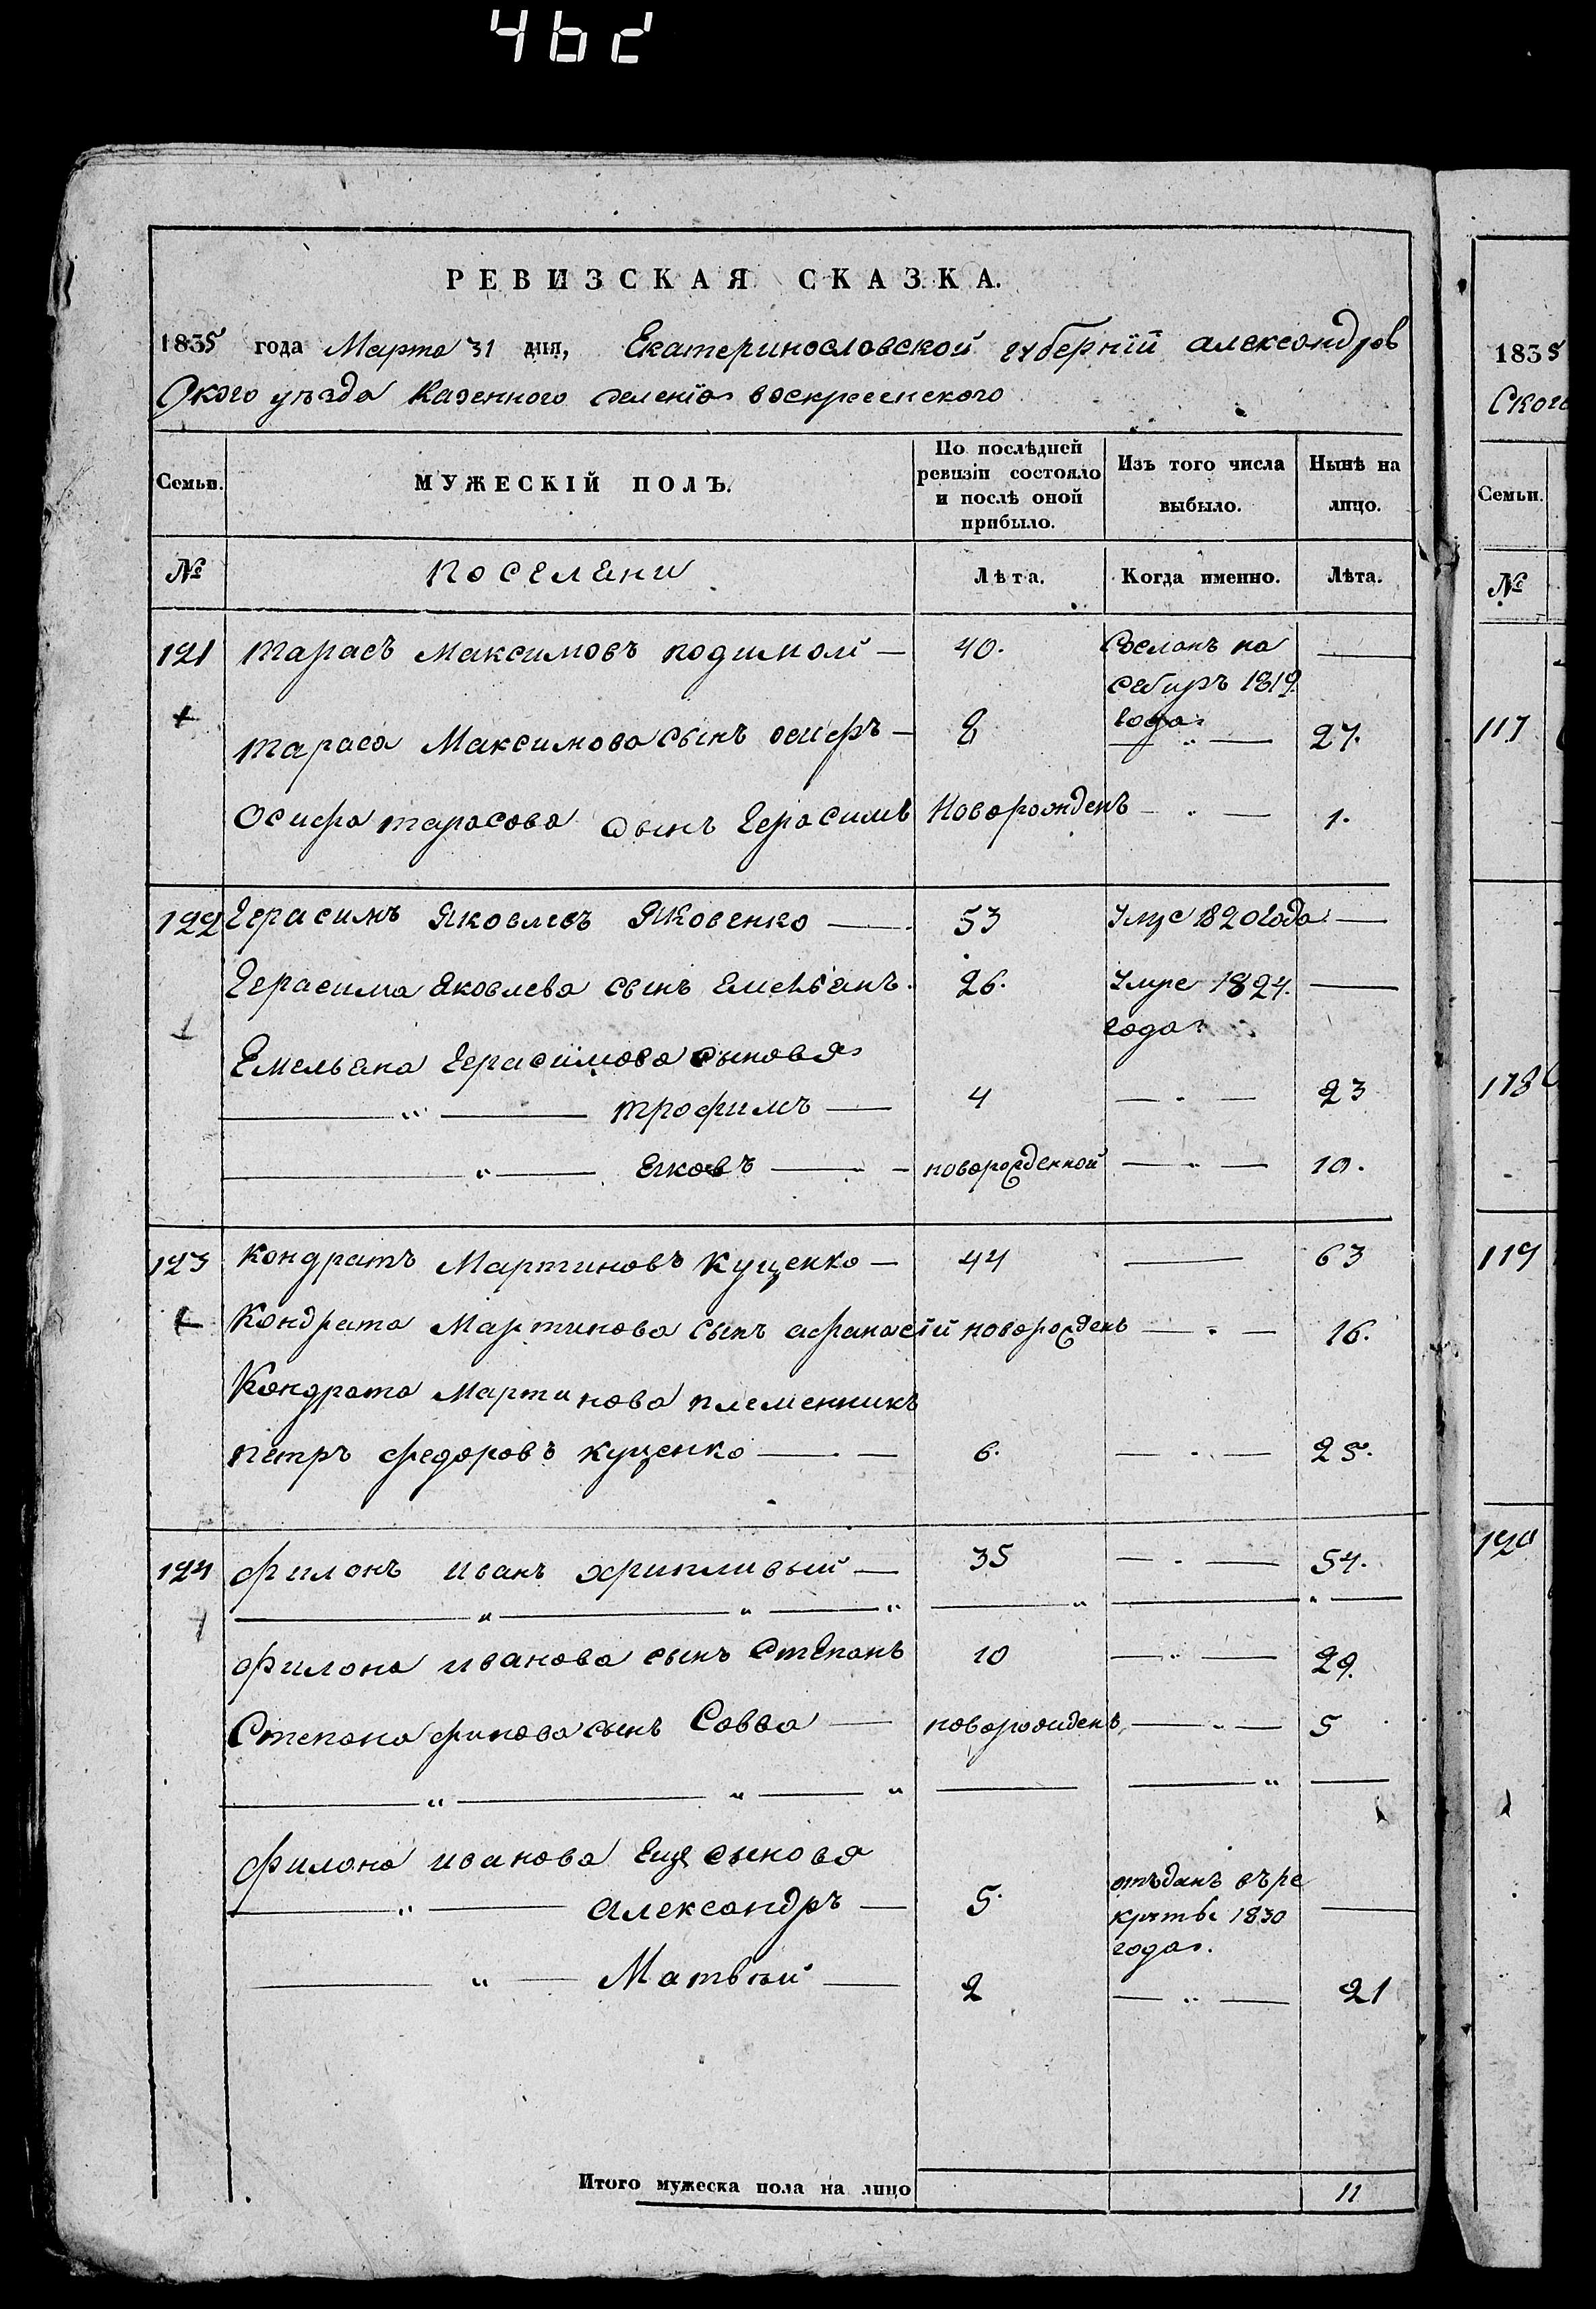 462
РЕВИЗСКАЯ СКАЗКА.
1835 года Марта 31 дня, Екатеринославской губернїй александров
Ского уѣзда Казенного селенїя воскресенского
Семьи. МУЖЕСКІЙ ПОЛЪ. По послѣдней ревизіи состояло и послѣ оной прибыло. Изъ того числа выбыло. Нынѣ на лицо.
№ поселяни Лѣта. Когда именно. Лѣта.
121 тарасъ Максимовъ подимой — 40. Сосланъ на —
сибиръ 1819
года
тараса Максимова сынъ осифъ — 8 — „ — 27.
Осифа тарасова сынъ Герасимъ Новорожденъ — „ — 1.
122 Герасимъ Яковлевъ Яковенко — 53 Умре 1820 Года —
Герасима Яковлева сынъ Емельянъ. 26. Умре 1824. —
года
Емельяна Герасимова сыновья
— „ — трофимъ — 4 — „ — 23
— „ — яковъ — новорожденной — „ — 10.
123 Кондратъ Мартиновъ Куценко — 44 — 63
Кондрата Мартинова сынъ афанасій новорожденъ — „ — 16.
Кондрата Мартинова племенникъ
петръ федоровъ куценко — 6. — „ — 25.
124 филонъ иванъ хрипливый — 35 — „ — 54.
— „ — „ — „ — „ — „ —
филона иванова сынъ Степанъ 10 — „ — 29.
Степана филова сынъ Савва — новорожденъ — „ — 5
— „ — „ — „ — — „ —
филона иванова Еще сыновья
— „ — александръ — 5. отъданъ въ ре —
круты 1830
года.
— „ — Матвѣй — 2 — „ — 21
Итого мужеска пола на лицо 11
1835
Ског
Семьи.
№
117
118
119
120